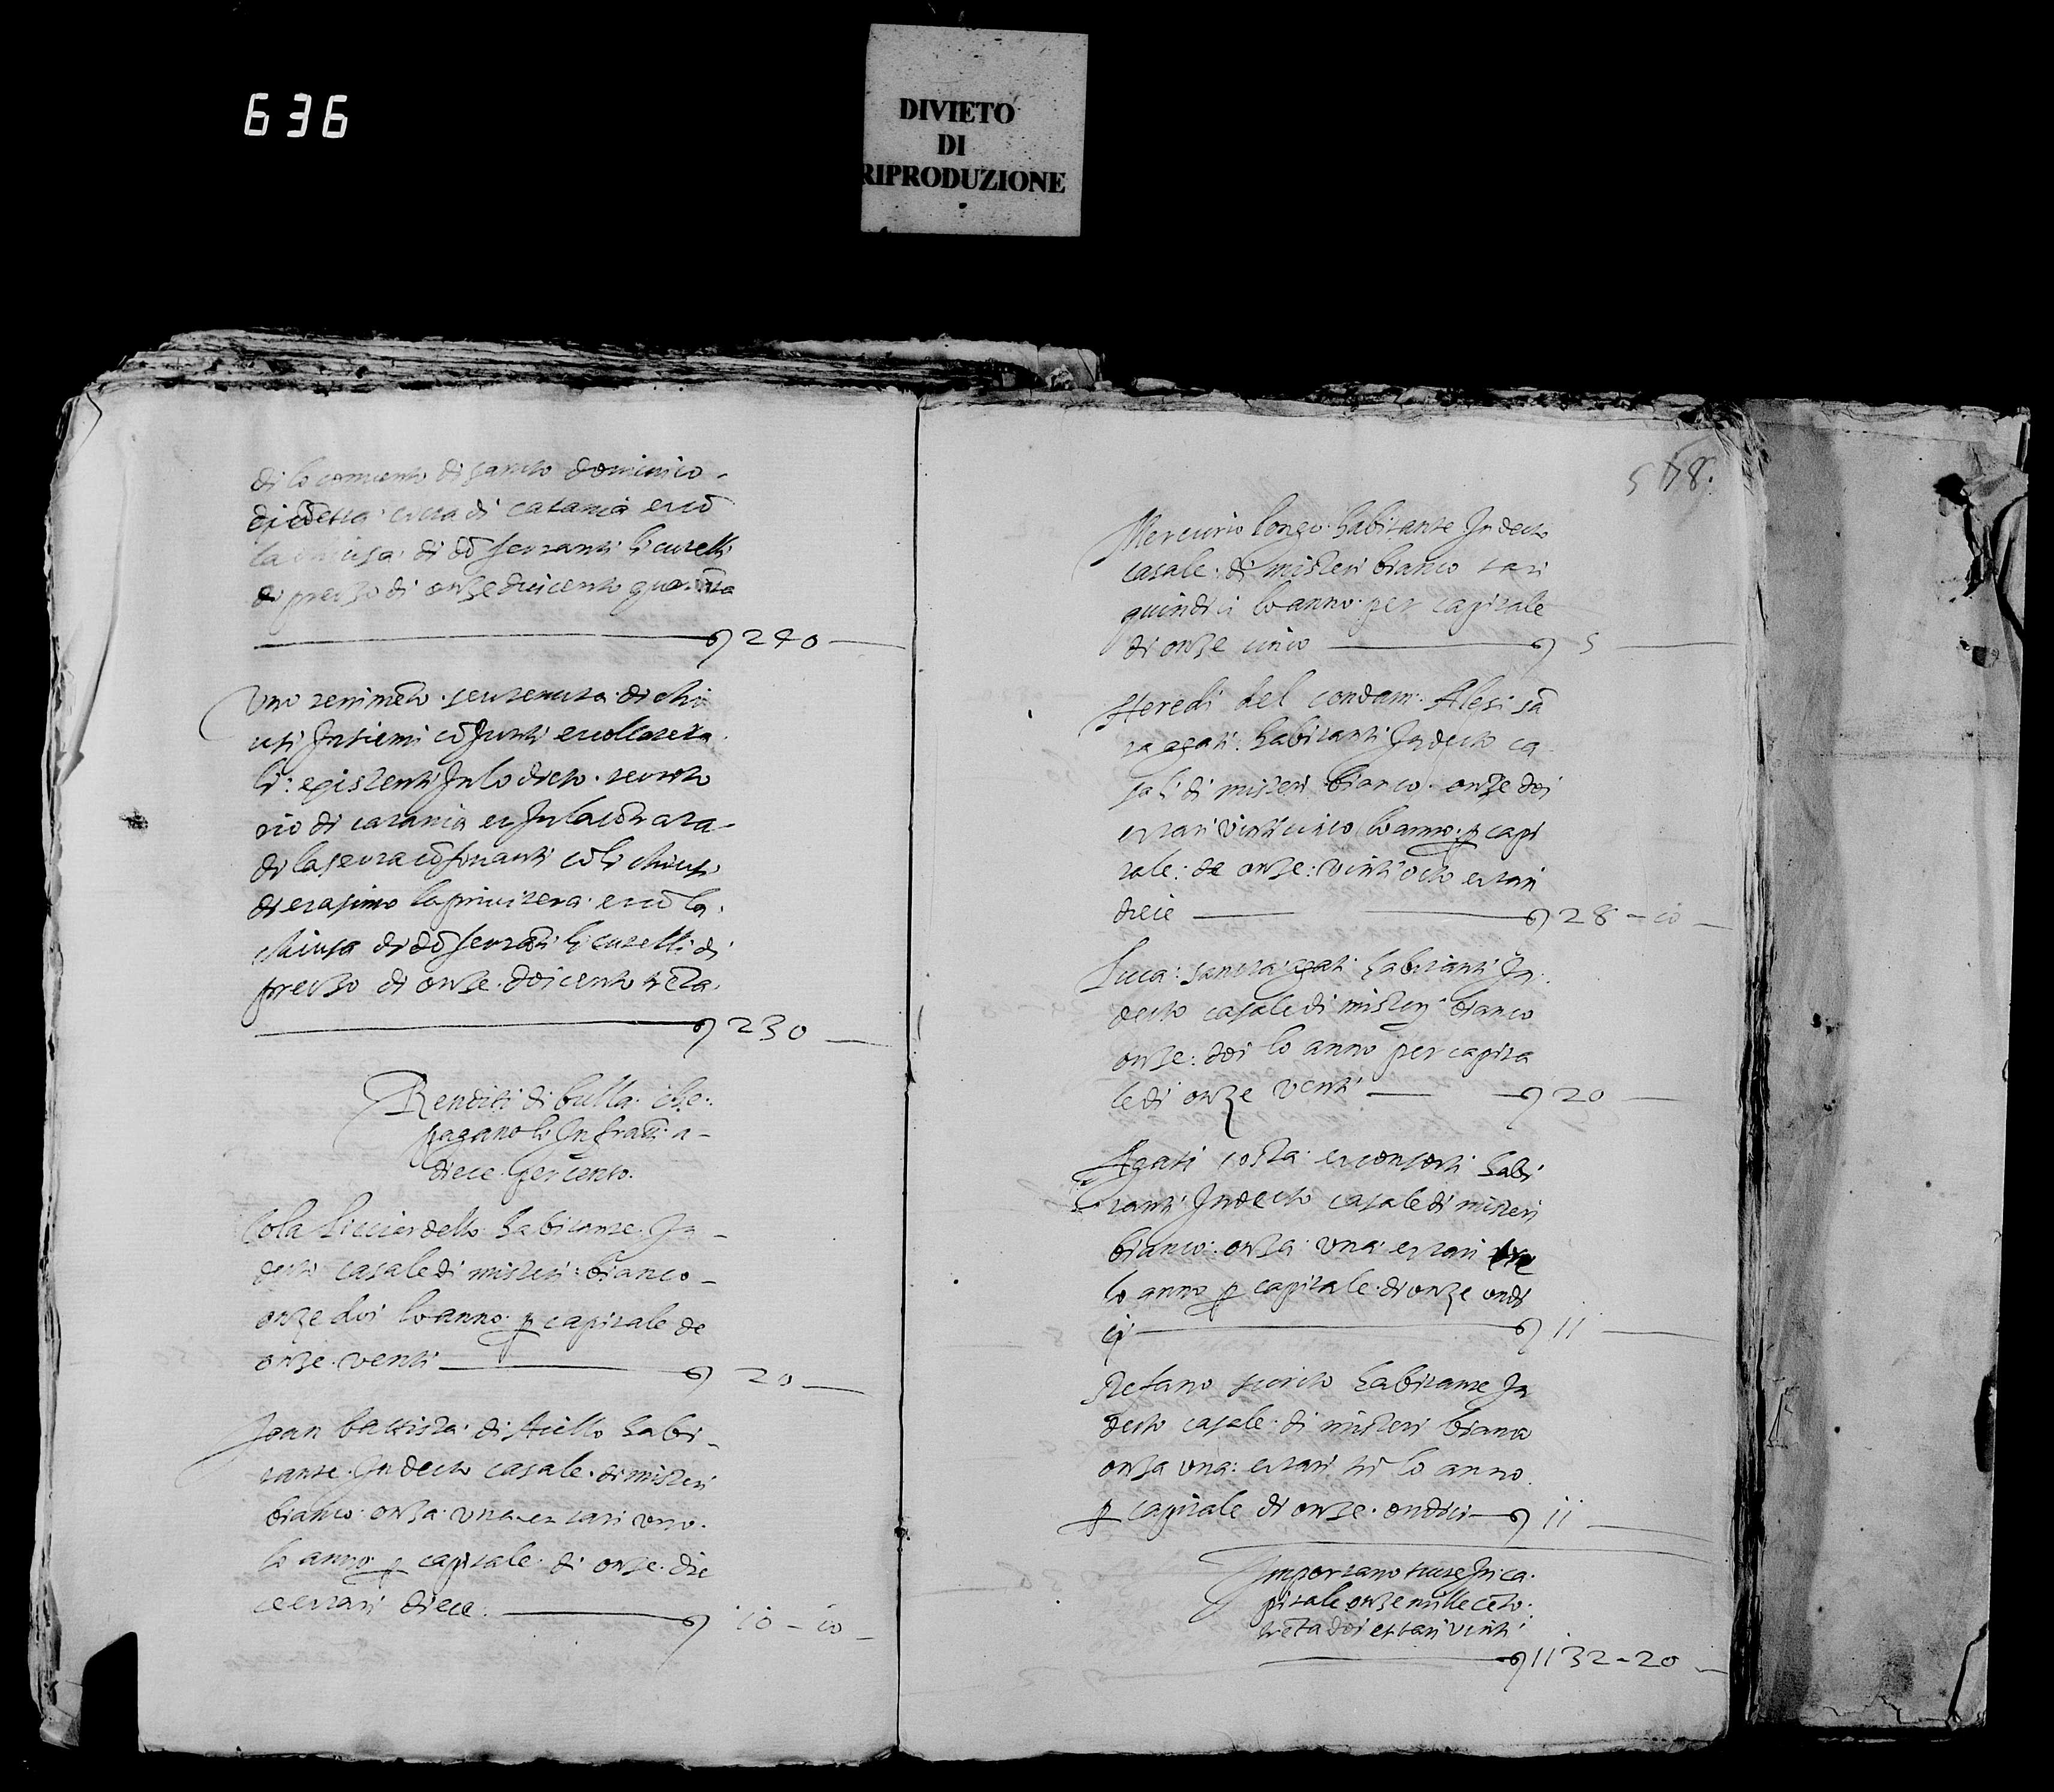 636
DIVIETO
DI
RIPRODUZIONE
di lo convento di santo dominico
di detta cita di catania et cō
la chiusa di dō ferranti li curelli
di prezzo di onze duicento quaranta
240
Uno tenimēto seu tenuta di chi
usi Insiemi cōJunti et collatera
li existenti In lo dicto territo
rio di catania et In la cōtrata
di la ferra cōfinanti cō li chiusi
di erasimo la privitera et cō la
chiusa di dō ferrāti li curelli di
prezzo di onze doicento trēta
230
Renditi di bulla che
pagano li Infratti a
diece per cento
Cola Licciardello habitante In
decto casale di misteri bianco
onze doi lo anno p capitale de
onze venti 20
Joan battista di Aiello habi
tante In decto casale di misteri
bianco onza una et tari uno
lo anno p capitale di onze die
ce et tari diece io - io
548
Mercurio longo habitante In decto
casale di misteri bianco tari
quindici lo anno per capitale
di onze cinco 5
Heredi del condam Alesi sā
ta agati habitanti In decto ca
sali di misteri bianco onze doi
et tari vinticinco lo anno p capi
tale de onze vinti octo et tari
diece 28 - io
Luca santa agati habitanti In
decto casale di misteri bianco
onze doi lo anno per capita
le di onze venti 20
Agati costa et consorti habi
tanti In decto casale di misteri
bianco onza una et tari tre
lo anno p capitale di onze undi
ci ii
Stefano scirto habitante In
decto casale di misteri bianco
onza una et tari tri lo anno
p capitale di onze ondici ii
Importano tutte In ca
pitale onze mille cēto
trēta doi et tari vinti
ii32 - 20